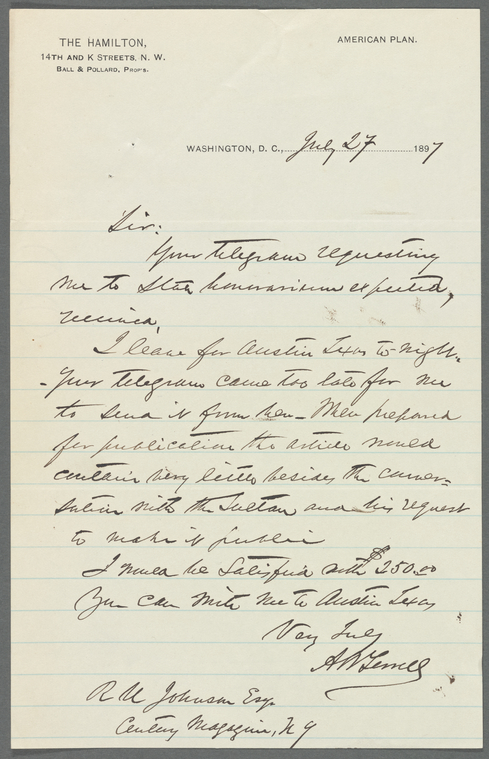 THE HAMILTON,
14TH AND K STREETS, N. W.
BALL & POLLARD, PROP'S.
AMERICAN PLAN.
WASHINGTON, D. C., July 27 1897
Sir:
Your telegram requesting
me to state honorarium expected,
received.
I leave for Austin Texas to-night.
- Your telegram came too late for me
to send it from here - When prepared
for publication the article would
contain very little besides the conver-
sation with the Sultan and his request
to make it public
I would be satisfied with $250.00
You can write me to Austin Texas
Very Truly
A W Terrell
R U Johnson Esq.
Century Magazine, N Y